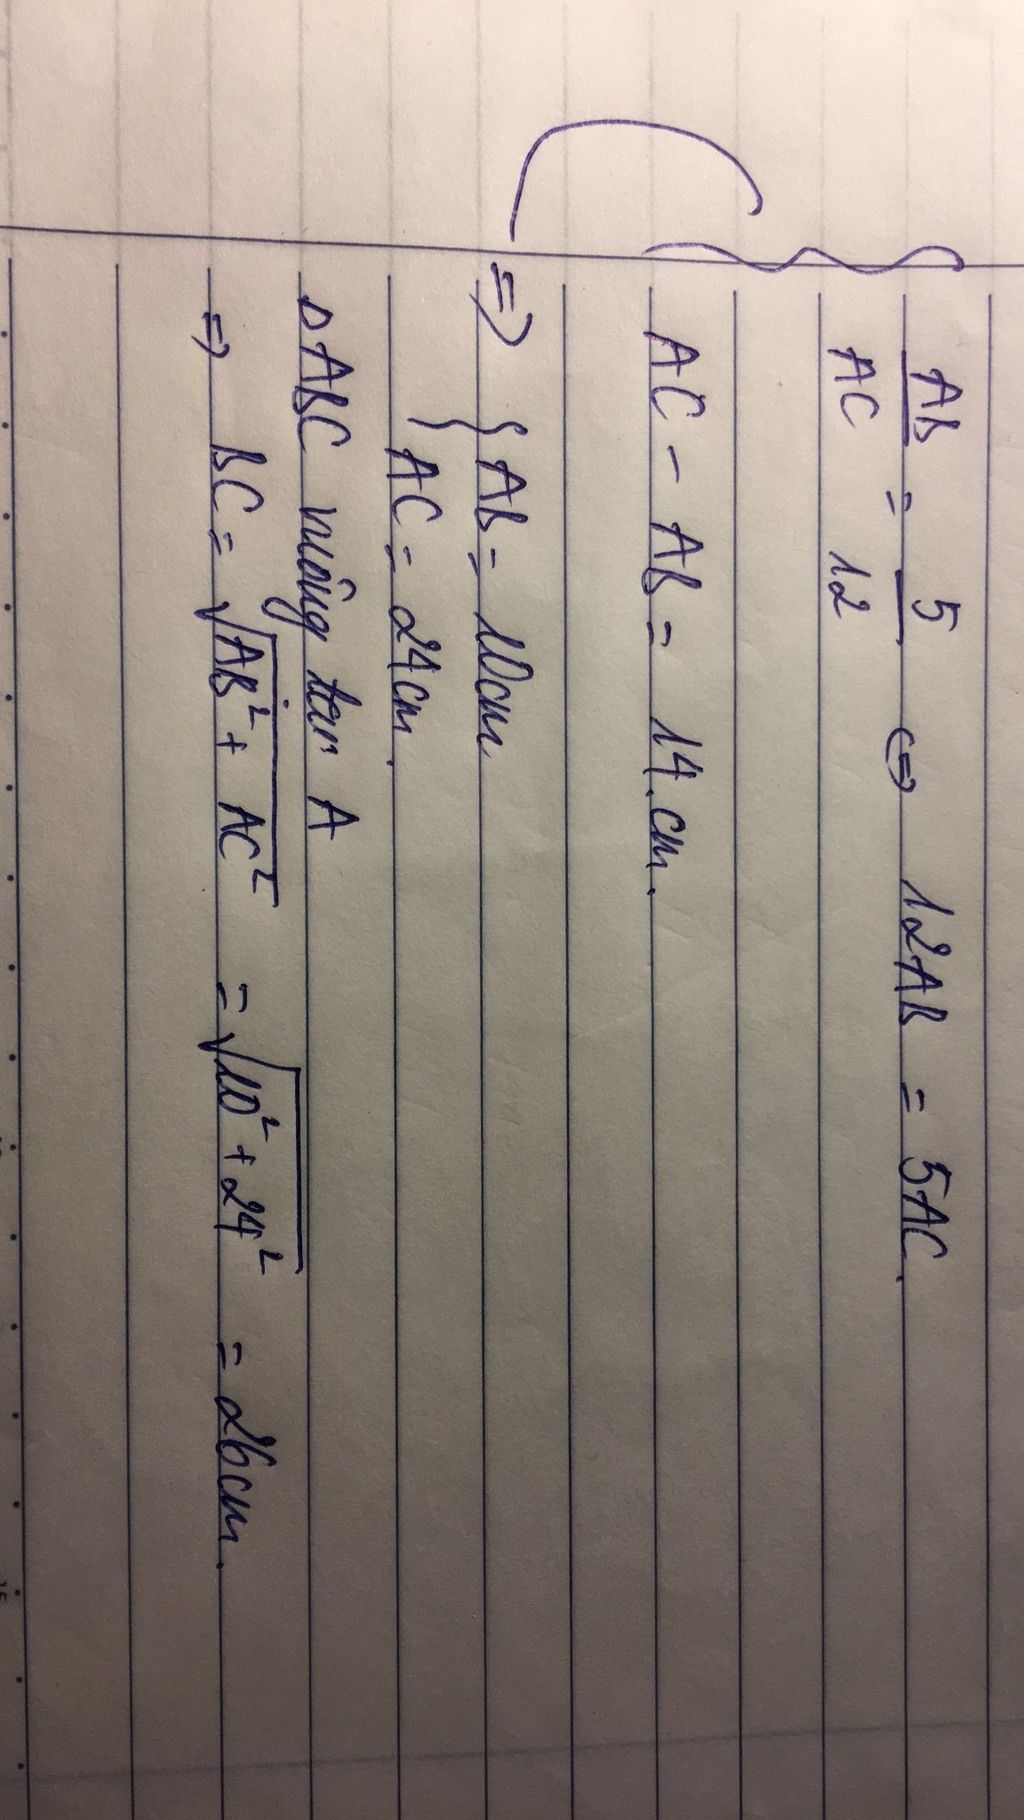 AB/AC = 5/12 ⇔ 12AB = 5AC.
AC - AB = 14.cm.
=> { AB = 10cm
AC = 24cm.
ΔABC vuông tại A
=> BC = √(AB² + AC²) = √(10² + 24²) = 26cm.
15